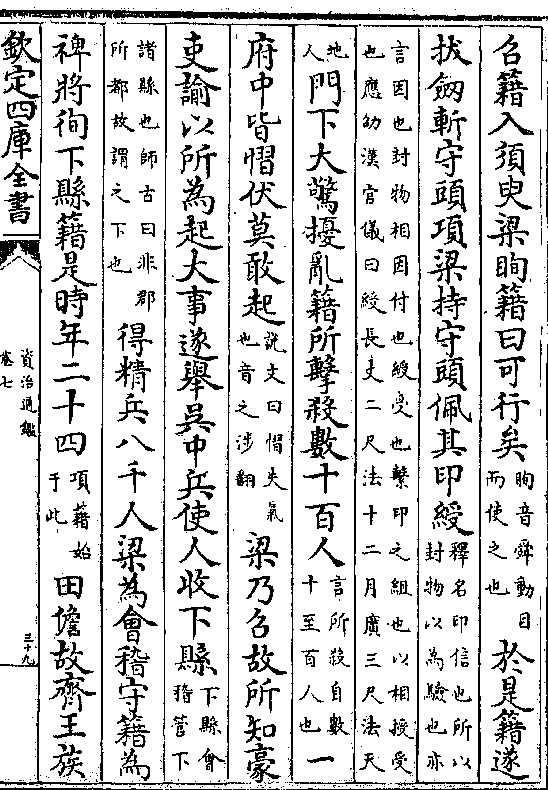 召籍入須臾梁眴籍曰可行矣眴音舜動目而使之也於是籍遂
拔劒斬守頭項梁持守頭佩其印綬釋名印信也所以封物以為驗也亦
言因也封物相因付也綬受也繫印之組也以相授受也應劭漢官儀曰綬長丈二尺法十二月廣三尺法天
地人門下大驚擾亂籍所擊殺數十百人言所殺自數十至百人也一
府中皆慴伏莫敢起說文曰慴失氣也音之涉翻梁乃召故所知豪
吏諭以所為起大事遂舉吳中兵使人收下縣下縣會稽管下
諸縣也師古曰非郡所都故謂之下也得精兵八千人梁為會稽守籍為
禆將徇下縣籍是時年二十四項藉始于此田儋故齊王族
欽定四庫全書
資治通鑑
卷七
三十九